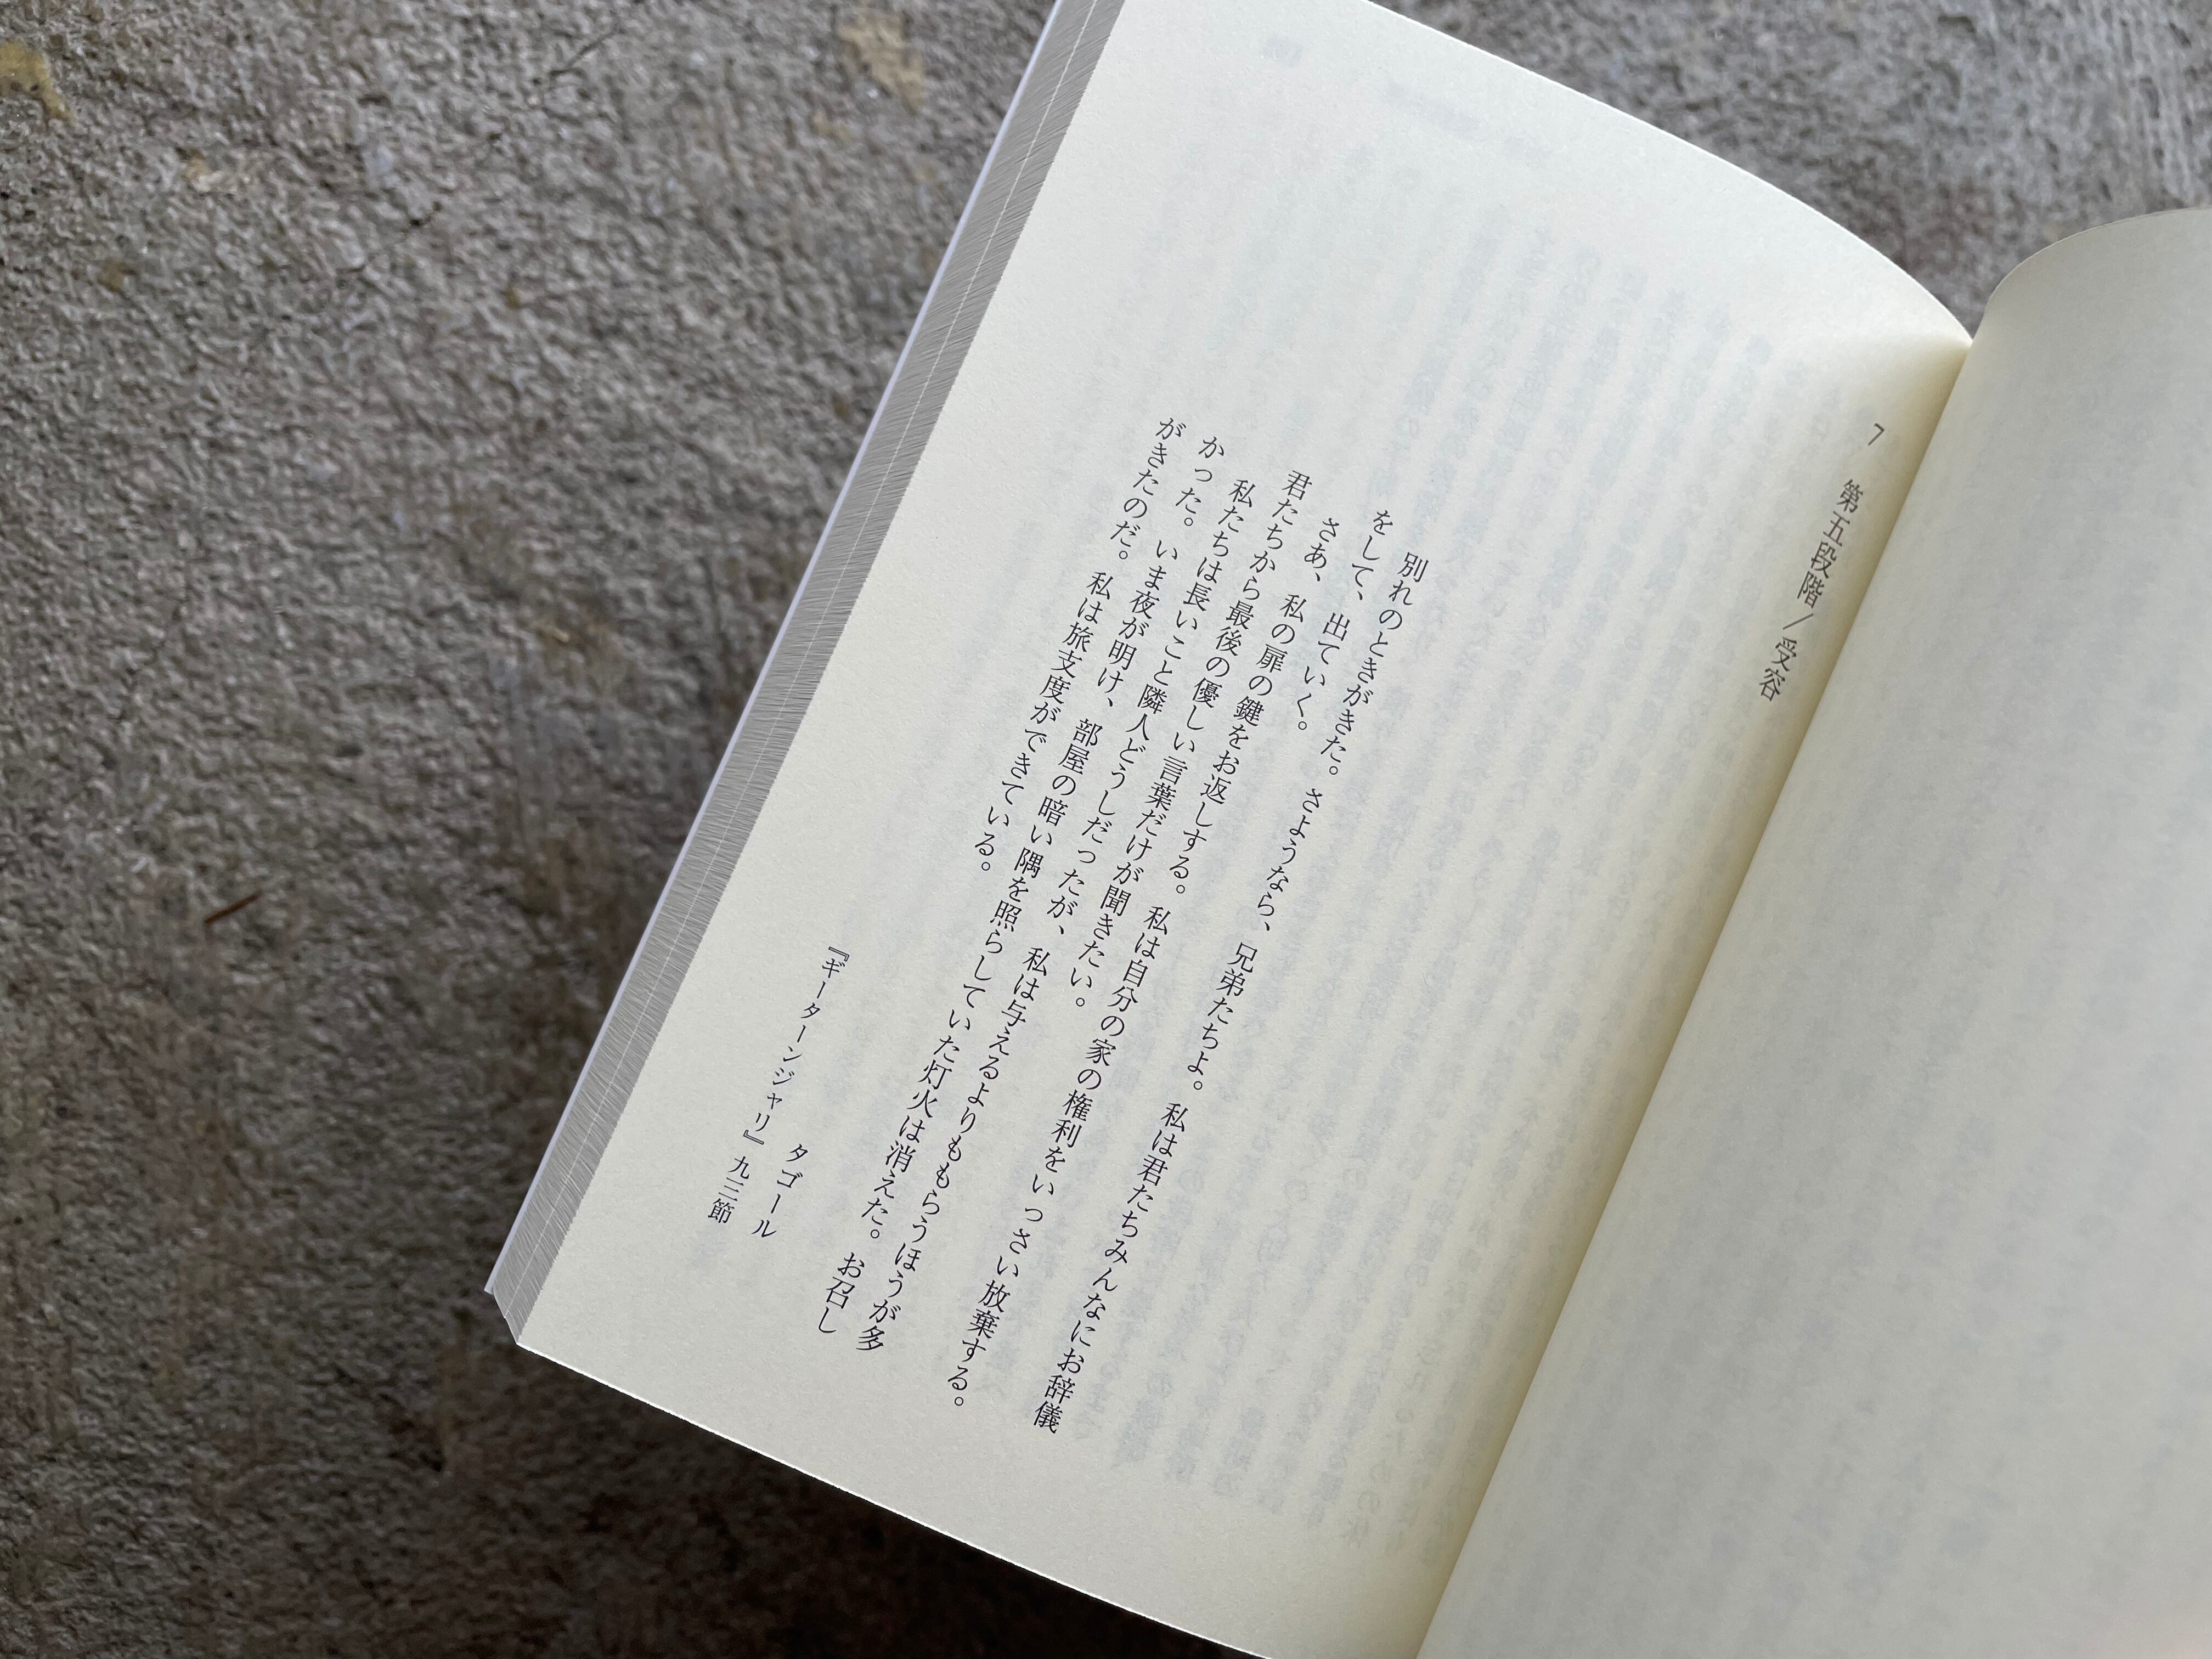 7 第五段階/受容
別れのときがきた。さようなら、兄弟たちよ。私は君たちみんなにお辞儀
をして、出ていく。
さあ、私の扉の鍵をお返しする。私は自分の家の権利をいっさい放棄する。
君たちから最後の優しい言葉だけが聞きたい。
私たちは長いこと隣人どうしだったが、私は与えるよりももらうほうが多
かった。いま夜が明け、部屋の暗い隅を照らしていた灯火は消えた。お召し
がきたのだ。私は旅支度ができている。
タゴール
『ギーターンジャリ』九三節